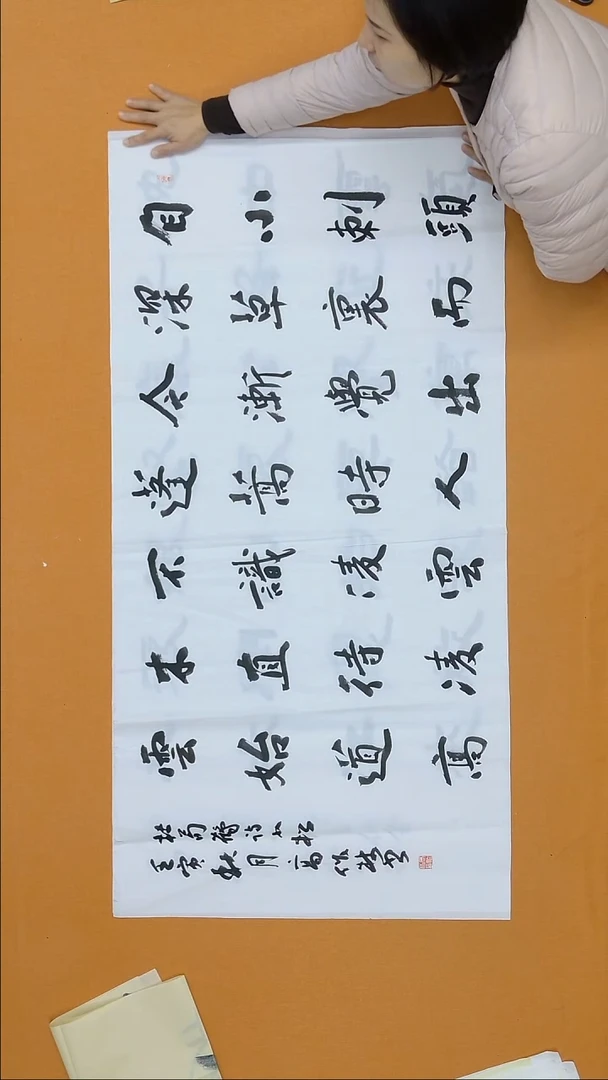 自小刺頭
深草裏而
今漸覺出
蓬蒿時人
不識凌雲
木直待凌
雲始道高
杜荀鶴詩小松
壬寅秋月